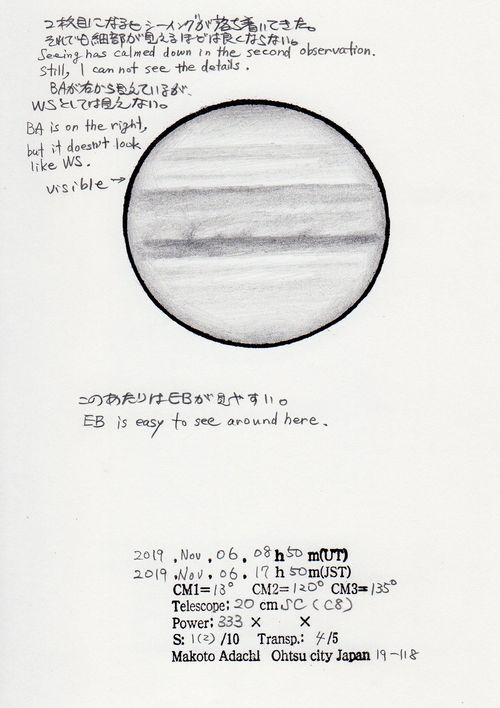 2枚目になるとシーイングが落ち着いてきた。
それでも細部が見えるほどは良くならない。
Seeing has calmed down in the second observation.
Still, I can not see the details.
BAが右から見えているが、
WSとしては見えない。
BA is on the right,
but it doesn't look
like WS.
visible →
このあたりはEBが見やすい。
EB is easy to see around here.
2019 .Nov. 06. 08 h 50 m(UT)
2019 .Nov. 06. 17 h 50 m(JST)
CM1= 13° CM2= 120° CM3= 135°
Telescope: 20 cm SC (C8)
Power: 333 × ×
S: 1(2) /10 Transp.: 4/5
Makoto Adachi Ohtsu city Japan 19-118